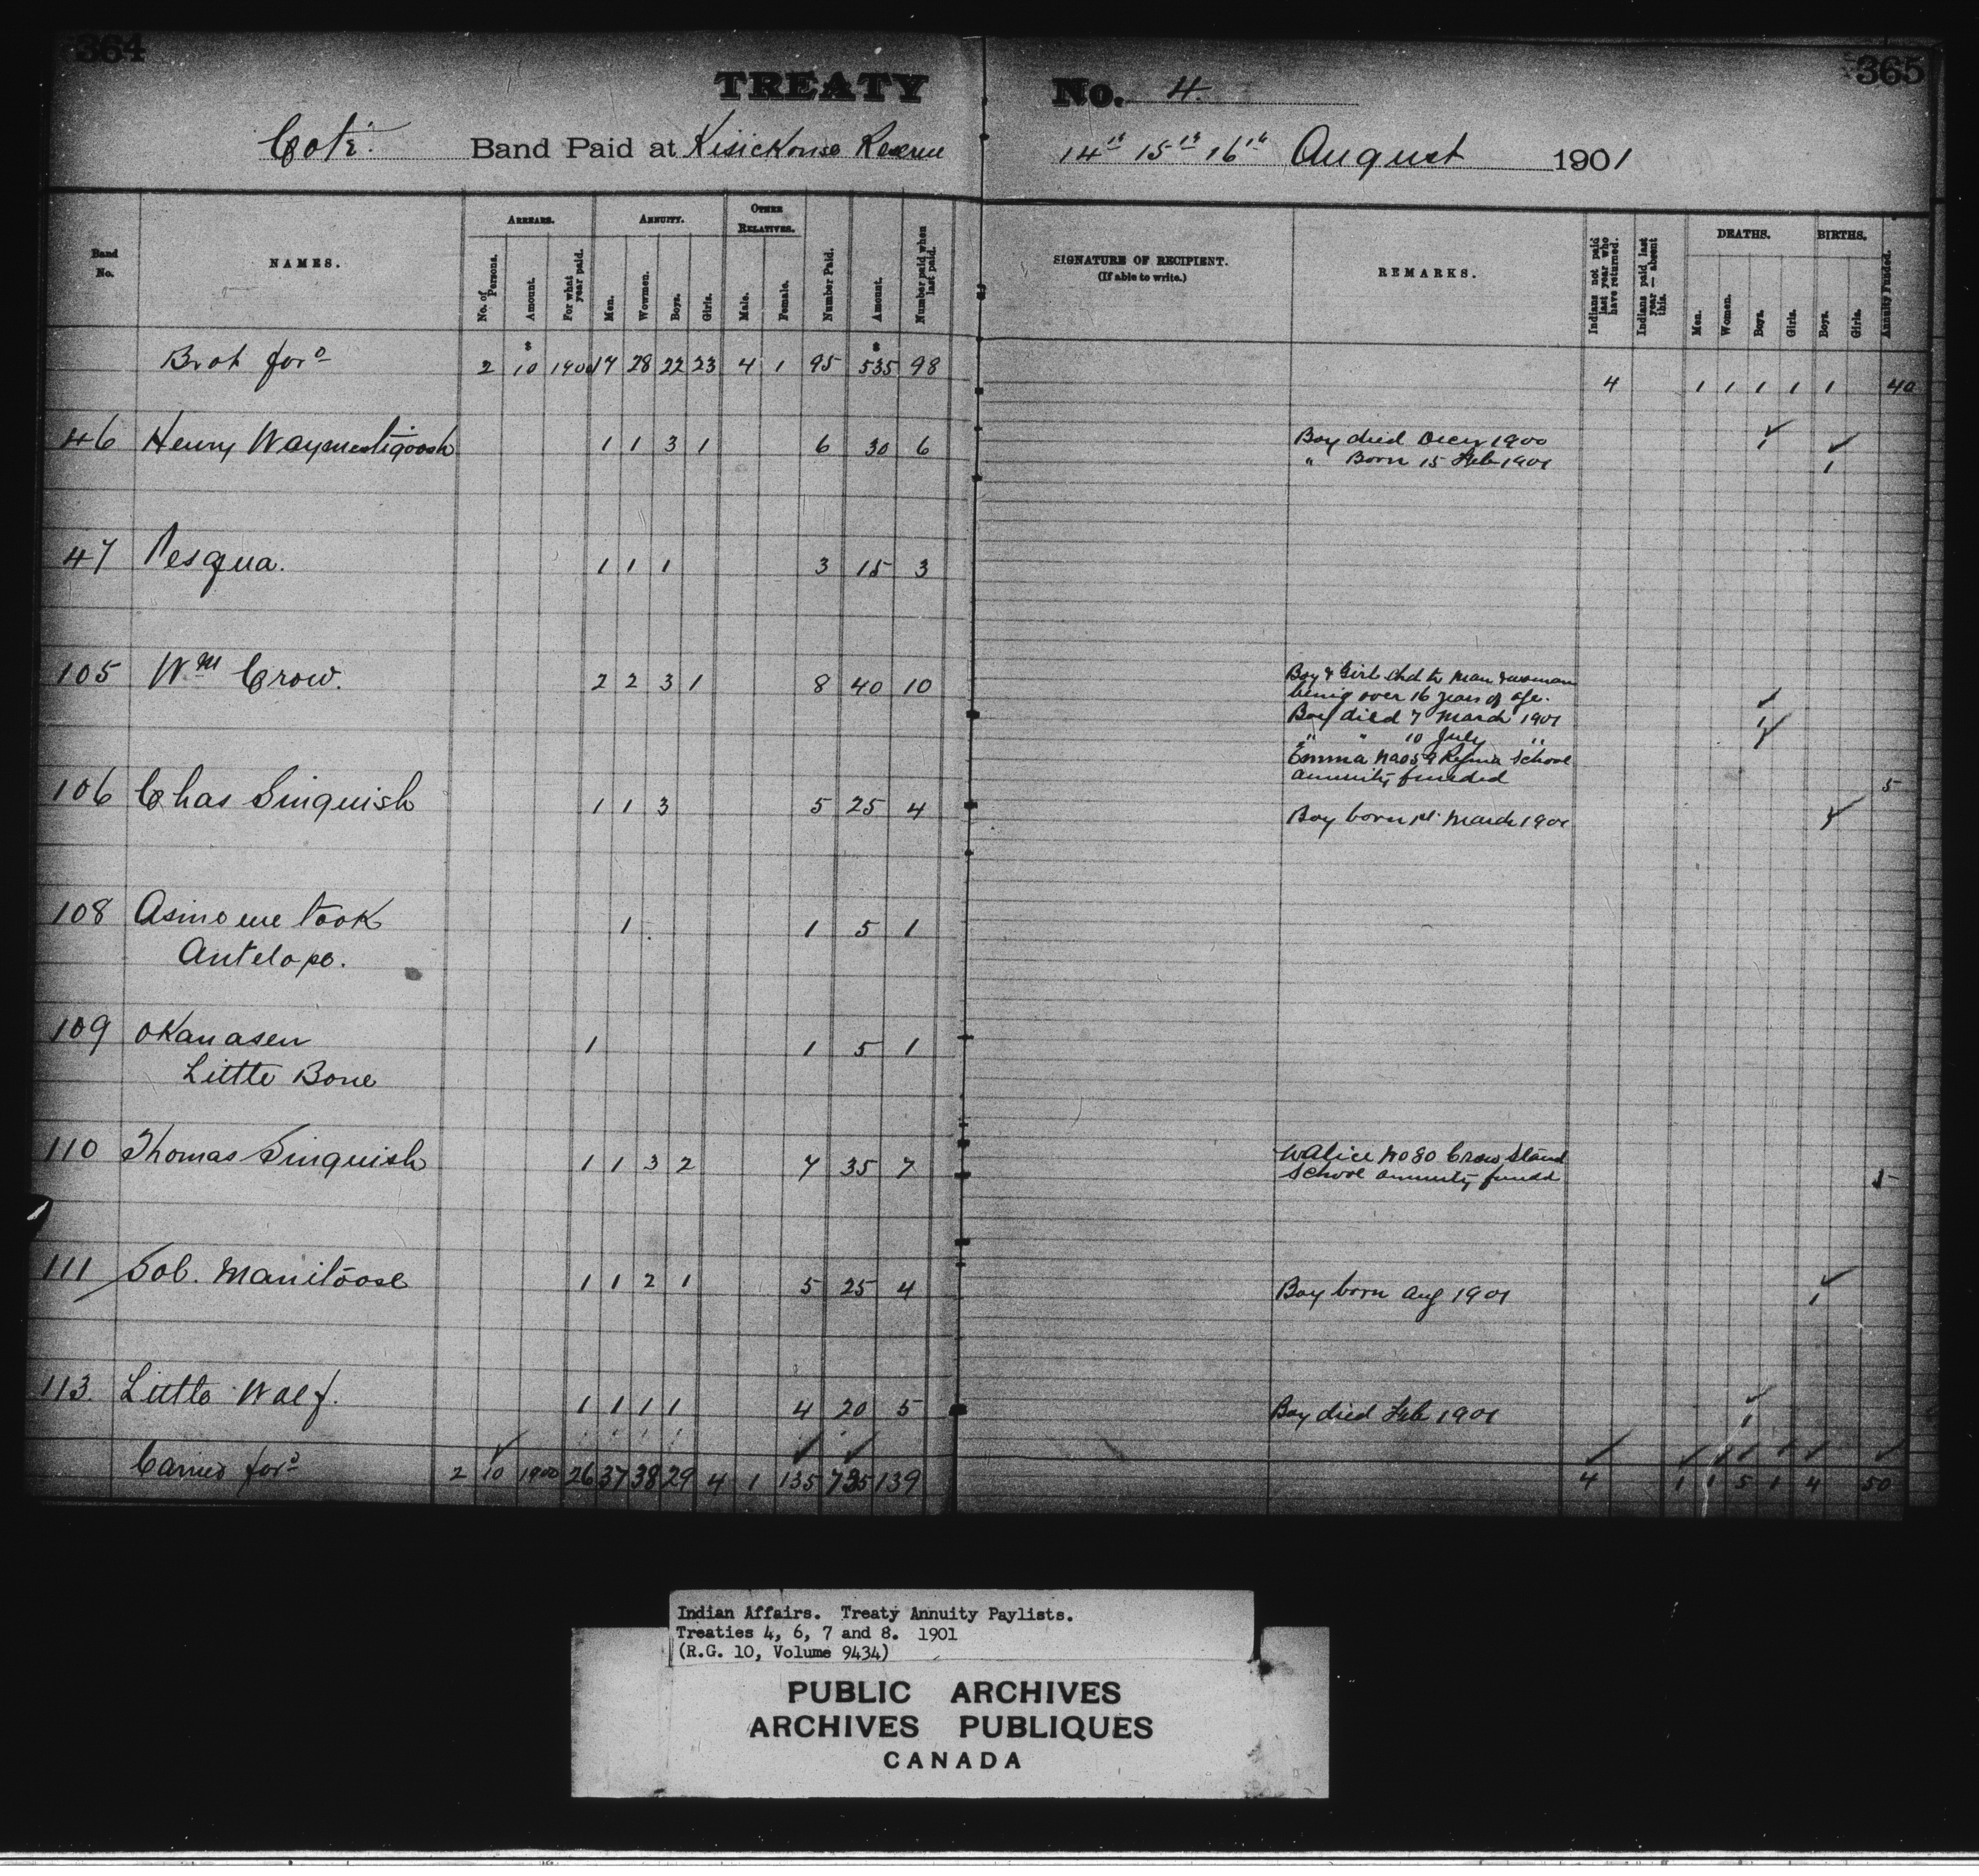 364
365
TREATY No. 4.
Coté. Band Paid at Kisickonse Reserve 14th 15th 16th August 1901
Band No.
NAMES.
ARREARS.
No. of Persons.
Amount.
For what year paid.
ANNUITY.
Men.
Wowmen.
Boys.
Girls.
OTHER RELATIVES.
Male.
Female.
Number Paid.
Amount.
Number paid when last paid.
SIGNATURE OF RECIPIENT.
(If able to write.)
REMARKS.
Indians not paid last year who have returned.
Indians paid last year — absent this.
DEATHS.
Men.
Women.
Boys.
Girls.
BIRTHS.
Boys.
Girls.
Annuity Funded.
$ $
Brot ford 2 10 1900 17 28 22 23 4 1 95 535 98 4 1 1 1 1 1 40
46 Henry Waymestigoosh 1 1 3 1 6 30 6 Boy died Decr 1900 1
" Born 15 Feb 1901 1
47 Pesqua. 1 1 1 3 15 3
105 Wm Crow. 2 2 3 1 8 40 10 Boy & Girl chd to man & woman
being over 16 years of age.
Boy died 7 March 1901 1
" " 10 July " 1
Emma No 59 Regina School
annuity funded 5
106 Chas Sinquish 1 1 3 5 25 4 Boy born 1st March 1901 1
108 Asinowetook 1 1 5 1
Antelope.
109 Okanasen 1 1 5 1
Little Bone
110 Thomas Sinquish 1 1 3 2 7 35 7 Alice No 80 Crow Stand
School annuity funded 5
111 Sol. Manitoose 1 1 2 1 5 25 4 Boy born Aug 1901 1
113 Little Wolf. 1 1 1 1 4 20 5 Boy died Feb 1901 1
Carried ford 2 10 1900 26 37 38 29 4 1 135 735 139 4 1 1 5 1 4 50
Indian Affairs. Treaty Annuity Paylists.
Treaties 4, 6, 7 and 8. 1901
(R.G. 10, Volume 9434)
PUBLIC ARCHIVES
ARCHIVES PUBLIQUES
CANADA